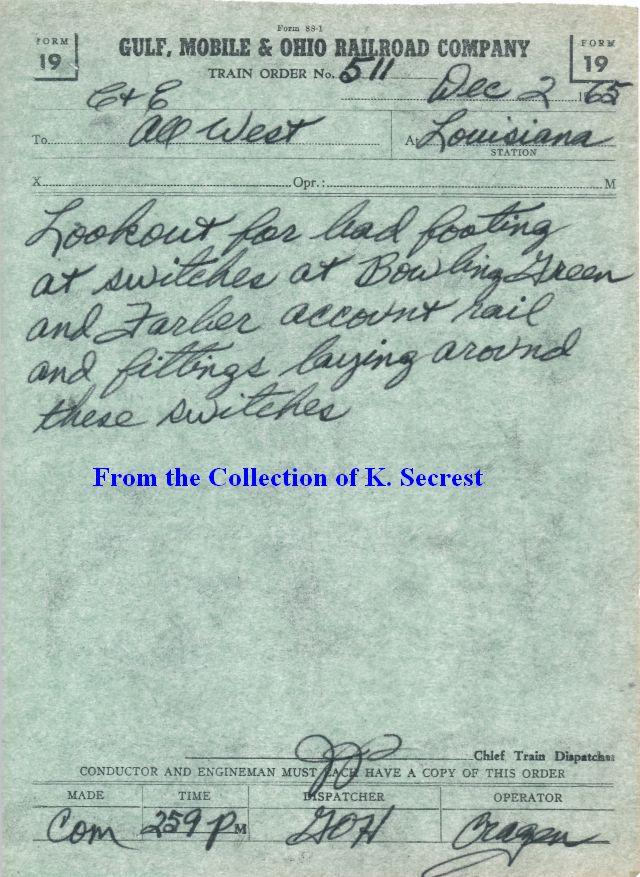 Form 88-1
FORM 19
GULF, MOBILE & OHIO RAILROAD COMPANY
FORM 19
TRAIN ORDER No. 511
Dec 2 1965
C+E
To All West
At Louisiana
STATION
X Opr.: M
Lookout for bad footing
at switches at Bowling Green
and Farber account rail
and fittings laying around
these switches
From the Collection of K. Secrest
Chief Train Dispatcher
CONDUCTOR AND ENGINEMAN MUST EACH HAVE A COPY OF THIS ORDER
MADE TIME DISPATCHER OPERATOR
Com 259 P M GOH Cragen